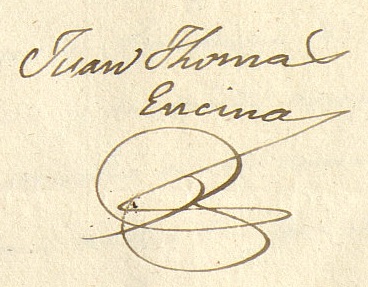 Juan Thomas
Encina